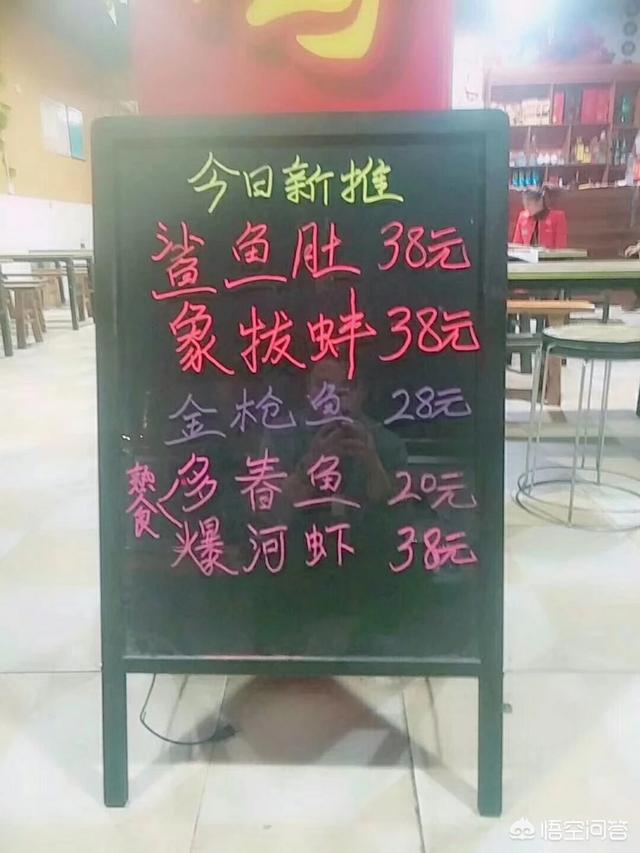 今日新推
鲨鱼肚 38元
象拔蚌 38元
金枪鱼 28元
熟食
多春鱼 20元
爆河虾 38元
悟空问答